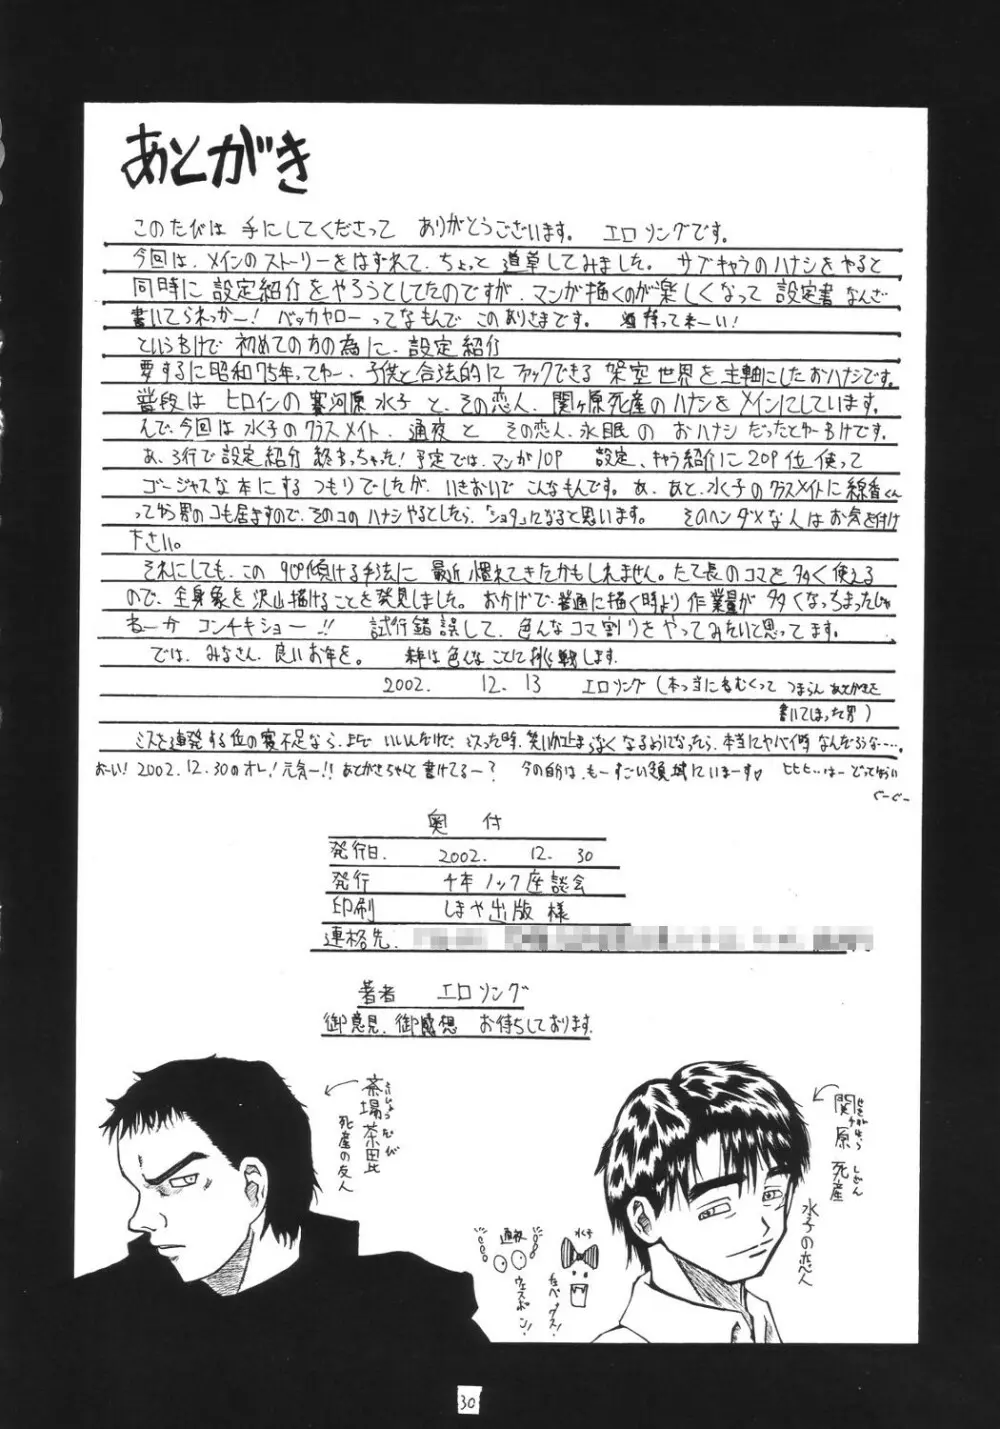 あとがき
このたびは 手にしてくださって ありがとうございます。 エロソングです。
今回は、メインのストーリーをはずれて、ちょっと道草してみました。 サブキャラのハナシをやると
同時に設定紹介をやろうとしてたのですが、マンガ描くのが楽しくなって 設定書なんざ
書いてられっかー! バッカヤローってなもんで このありさまです。 持って来ーい!
というわけで 初めての方の為に、設定紹介
要するに昭和75年ってゆー、子供と合法的に ファックできる 架空世界を主軸にしたおハナシです。
普段は ヒロインの賽河原水子と、その恋人、関ヶ原死産のハナシをメインにしています。
んで、今回は水子のクラスメイト、通夜と その恋人、永眠の おハナシだったとゆーわけです。
あ、3行で設定紹介 終わっちゃった! 予定では、マンガ10P 設定、キャラ紹介に20P位使って
ゴージャスな本にするつもりでしたが、いきおいでこんなもんです。あ、あと、水子のクラスメイトに線香くん
って男のコも居ますので、そのコのハナシやるとしたら、「ショタ」になると思います。 そのヘンダメな人はお気を付け
下さい。
それにしても、この 90°傾ける手法に 最近慣れてきたかもしれません。たて長のコマを多く使える
ので、全身象を沢山描けることを発見しました。おかげで、普通に描く時より作業量が多くなっちまったじゃ
ねーか コンチキショー!! 試行錯誤して、色んなコマ割りをやってみたいと思ってます。
では、みなさん、良いお年を。 来年は色んなことに挑戦します。
2002. 12. 13 エロソング(本当にねむくって つまらんあとがきを
書いてしまった男)
ミスを連発する位の寝不足なら、まだ いいんだけど、ミスった時、笑いが止まらなくなるようになったら、本当にヤバイ時なんだろうな……。
おーい! 2002.12.30のオレ! 元気ー!! あとがきちゃんと書けてるー? 今の自分は、もーすごい領域にいまーす♡ ヒヒヒ…はー どってゆうい
ぐーぐー
奥付
発行日. 2002. 12. 30
発行 千本ノック座談会
印刷 しまや出版 様
連絡先.
著者 エロソング
御意見、御感想 お待ちしております.
茶場茶毘
死産の友人
通夜
ウェスポン!
水子
たべマス!
関ヶ原 死産
せきがはら しざん
水子の恋人
30